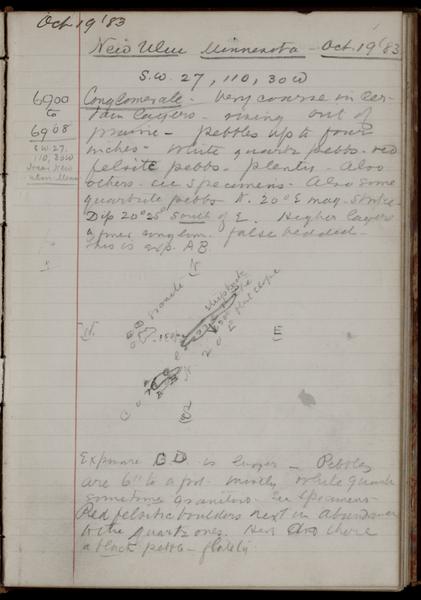 Oct 19 '83
New Ulm Minnesota - Oct. 19 '83
S.W. 27, 110, 30W
6900
to
6908
S W. 27.
110, 30W
near New
Ulm Minn
Conglomerate - Very coarse in cer-
tain layers - rising out of
prairie - Pebbles up to four
inches - White quartz pebbs - red
felsite pebbs - plenty - Also
others - see specimens - Also some
quartzite pebbs N. 20° E mag. Strike
Dip 20° 25° South of E. Higher layers
finer conglom. false bedded -
This is exp. A B.
N
E
S
Exposure C D is larger - Pebbles
are 6" to a foot mostly white quartz
sometimes Granitoid - See Specimens -
Red felsitic boulders next in abundance
to the quartz ones. Here and there
a black pebb - flinty.